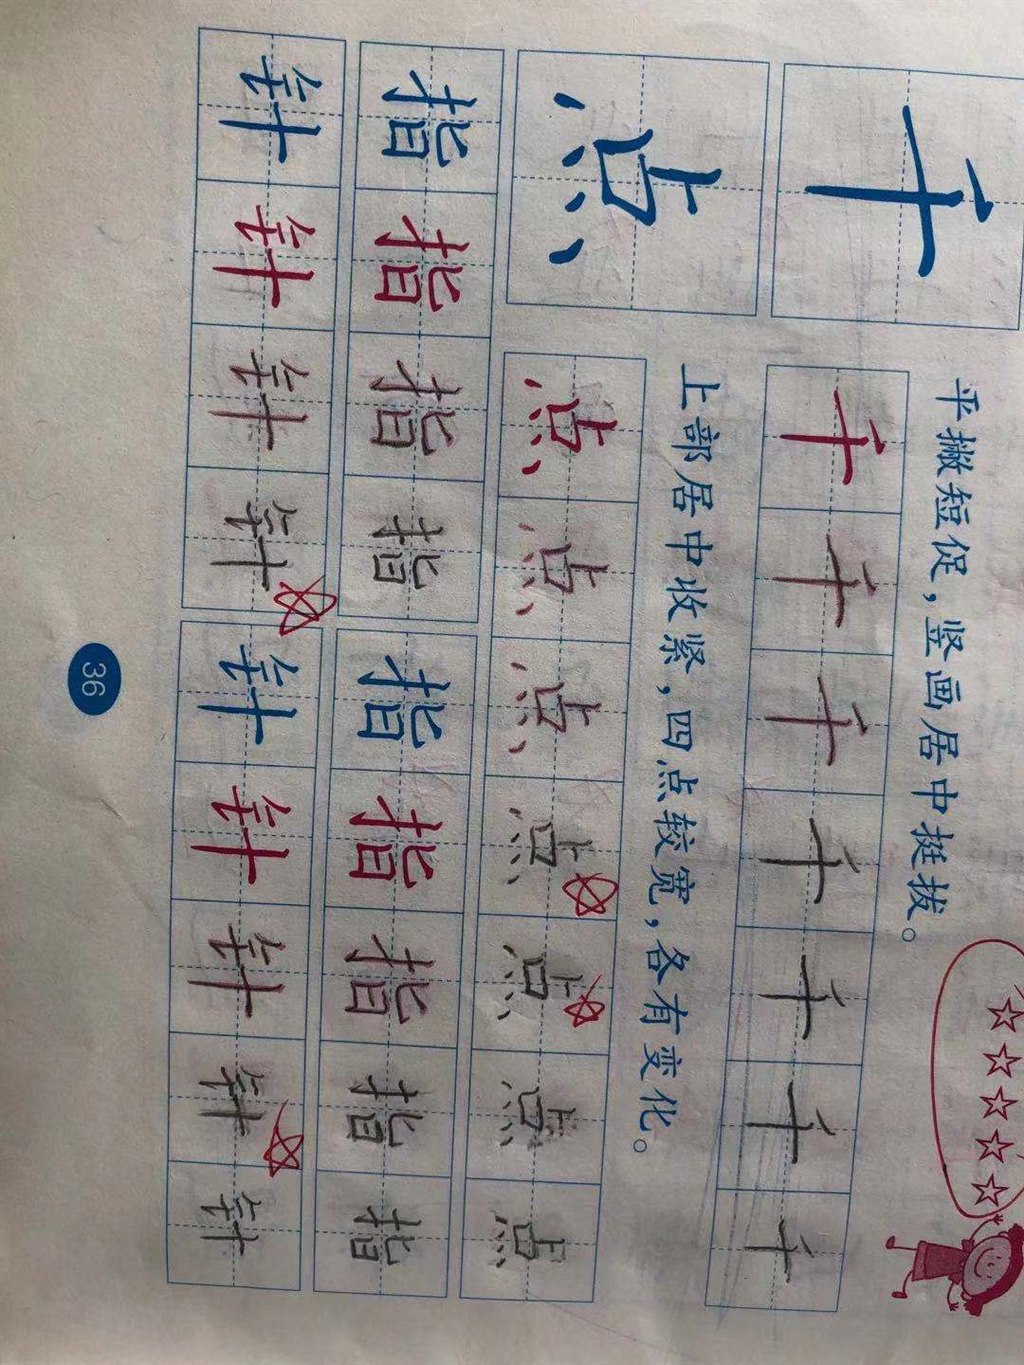 千
平撇短促，竖画居中挺拔。
千 千 千 千 千 千 千
点
上部居中收紧，四点较宽，各有变化。
点 点 点 点 点 点 点
指 指 指 指 指 指 指 指 指
针 针 针 针 针 针 针 针 针
36